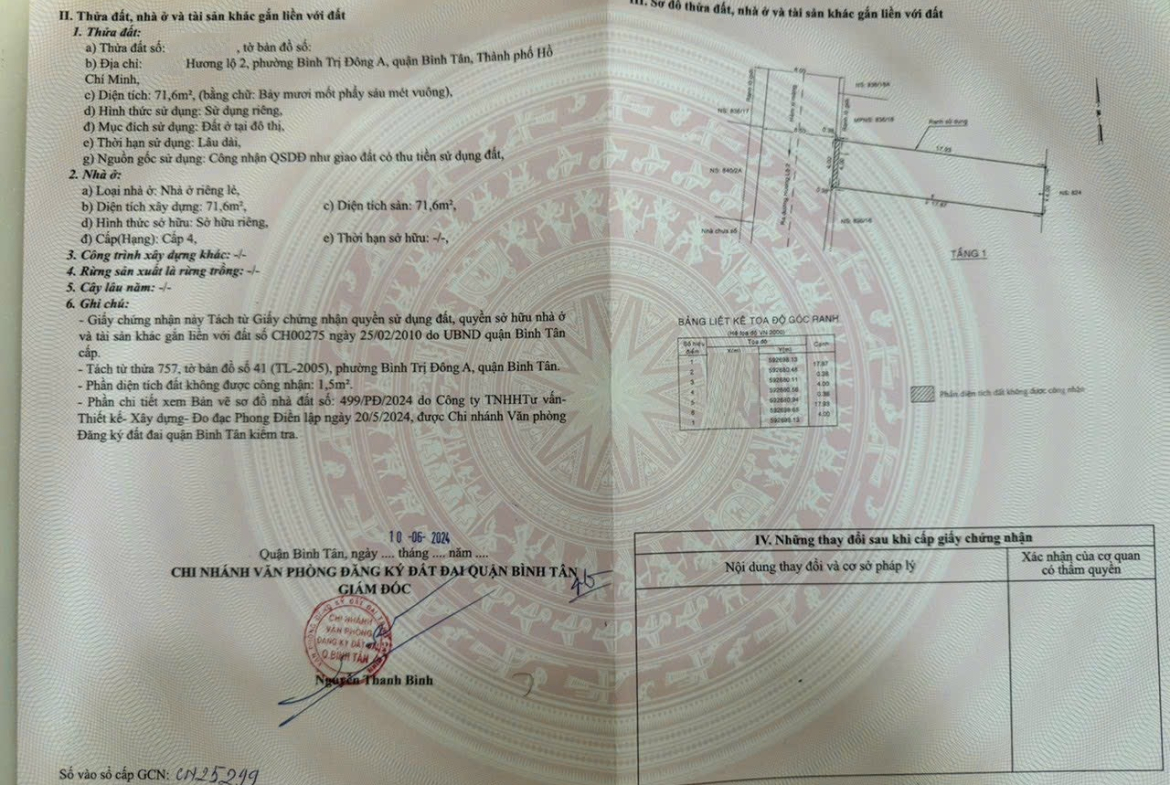 II. Thửa đất, nhà ở và tài sản khác gắn liền với đất
1. Thửa đất:
a) Thửa đất số: , tờ bản đồ số:
b) Địa chỉ: Hương lộ 2, phường Bình Trị Đông A, quận Bình Tân, Thành phố Hồ
Chí Minh,
c) Diện tích: 71,6m², (bằng chữ: Bảy mươi mốt phẩy sáu mét vuông),
d) Hình thức sử dụng: Sử dụng riêng,
đ) Mục đích sử dụng: Đất ở tại đô thị,
e) Thời hạn sử dụng: Lâu dài,
g) Nguồn gốc sử dụng: Công nhận QSDĐ như giao đất có thu tiền sử dụng đất,
2. Nhà ở:
a) Loại nhà ở: Nhà ở riêng lẻ,
b) Diện tích xây dựng: 71,6m², c) Diện tích sàn: 71,6m²,
d) Hình thức sở hữu: Sở hữu riêng,
đ) Cấp(Hạng): Cấp 4, e) Thời hạn sở hữu: -/-,
3. Công trình xây dựng khác: -/-
4. Rừng sản xuất là rừng trồng: -/-
5. Cây lâu năm: -/-
6. Ghi chú:
- Giấy chứng nhận này Tách từ Giấy chứng nhận quyền sử dụng đất, quyền sở hữu nhà ở
và tài sản khác gắn liền với đất số CH00275 ngày 25/02/2010 do UBND quận Bình Tân
cấp.
- Tách từ thửa 757, tờ bản đồ số 41 (TL-2005), phường Bình Trị Đông A, quận Bình Tân.
- Phần diện tích đất không được công nhận: 1,5m².
- Phần chi tiết xem Bản vẽ sơ đồ nhà đất số: 499/PĐ/2024 do Công ty TNHHTư vấn-
Thiết kế- Xây dựng- Đo đạc Phong Điền lập ngày 20/5/2024, được Chi nhánh Văn phòng
Đăng ký đất đai quận Bình Tân kiểm tra.
10 -06- 2024
Quận Bình Tân, ngày .... tháng .... năm ....
CHI NHÁNH VĂN PHÒNG ĐĂNG KÝ ĐẤT ĐAI QUẬN BÌNH TÂN
GIÁM ĐỐC
CHI NHÁNH
VĂN PHÒNG
ĐĂNG KÝ ĐẤT ĐAI
Q.BÌNH TÂN
Nguyễn Thanh Bình
Số vào sổ cấp GCN: CN25299
III. Sơ đồ thửa đất, nhà ở và tài sản khác gắn liền với đất
4.00
Ranh lộ giới
NS: 836/17
NS: 840/2A
Nhà chưa số
Ranh sử dụng
17.93
17.87
4.00
0.38
NS: 824
TẦNG 1
BẢNG LIỆT KÊ TỌA ĐỘ GÓC RANH
(Hệ tọa độ VN 2000)
Số hiệu điểm Tọa độ Cạnh
X(m) Y(m)
1
17.87
2
0.38
3
4.00
4
0.38
5
17.93
6
4.00
1
Phần diện tích đất không được công nhận
IV. Những thay đổi sau khi cấp giấy chứng nhận
Nội dung thay đổi và cơ sở pháp lý
Xác nhận của cơ quan
có thẩm quyền